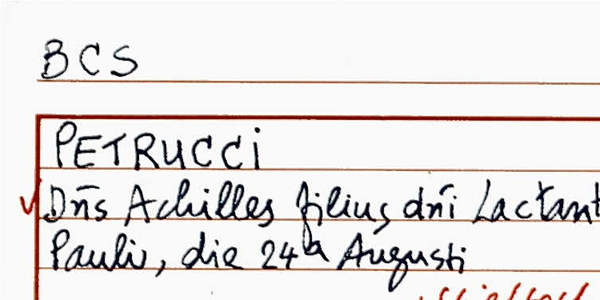 BCS
PETRUCCi
Dn̄s Achilles filius dn̄i Lactant
Pauli, die 24a Augusti